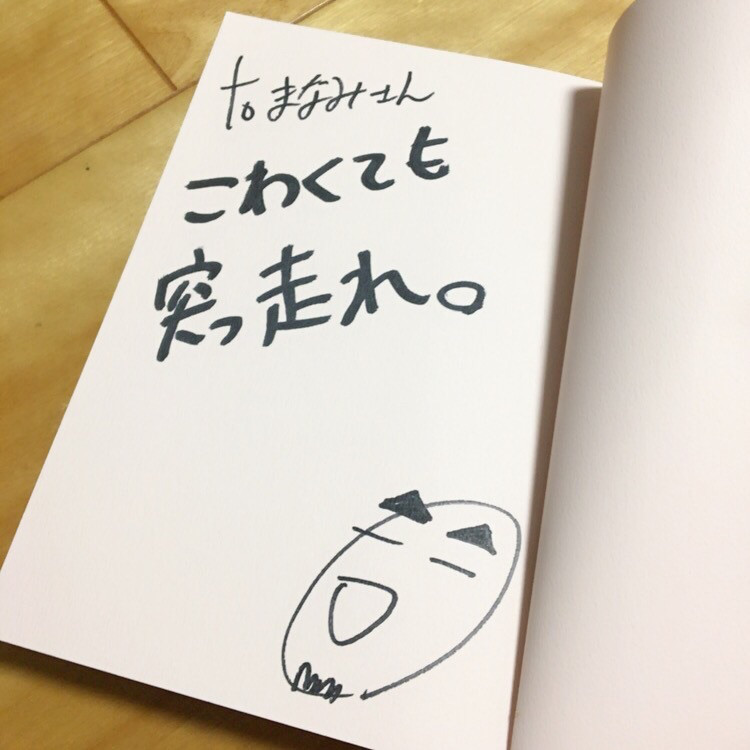 to まなみさん
こわくても
突っ走れ。